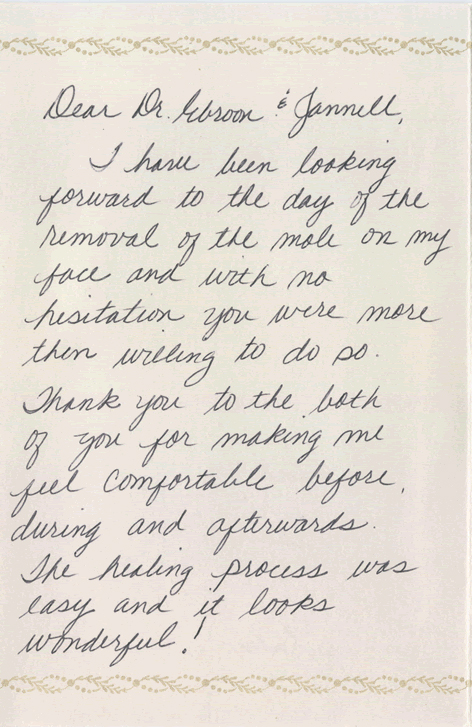 Dear Dr. Ebroon & Jannell,
I have been looking
forward to the day of the
removal of the mole on my
face and with no
hesitation you were more
then willing to do so.
Thank you to the both
of you for making me
feel comfortable before,
during and afterwards.
The healing process was
easy and it looks
wonderful!